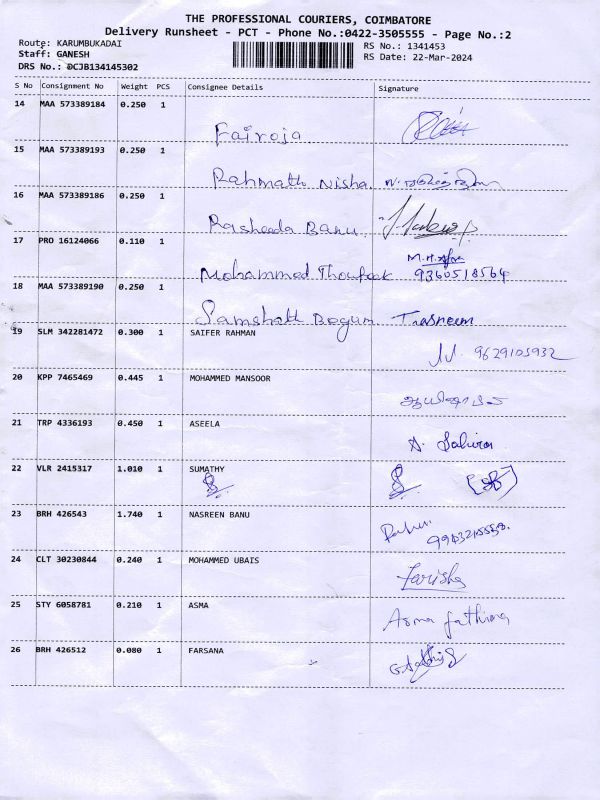 THE PROFESSIONAL COURIERS, COIMBATORE
Delivery Runsheet - PCT - Phone No.:0422-3505555 - Page No.:2
Route: KARUMBUKADAI RS No.: 1341453
Staff: GANESH RS Date: 22-Mar-2024
DRS No.: DCJB134145302
S No Consignment No Weight PCS Consignee Details Signature
14 MAA 573389184 0.250 1
Fairoja
15 MAA 573389193 0.250 1
Rahmath Nisha
16 MAA 573389186 0.250 1
Rasheeda Banu
17 PRO 16124066 0.110 1
Mohammed Thoufeek 9360518564
18 MAA 573389190 0.250 1
Samshath Begum Tasneem
19 SLM 342281472 0.300 1 SAIFER RAHMAN
9629105932
20 KPP 7465469 0.445 1 MOHAMMED MANSOOR
21 TRP 4336193 0.450 1 ASEELA
22 VLR 2415317 1.010 1 SUMATHY
23 BRH 426543 1.740 1 NASREEN BANU
24 CLT 30230844 0.240 1 MOHAMMED UBAIS
Farisha
25 STY 6058781 0.210 1 ASMA
Asma fathima
26 BRH 426512 0.080 1 FARSANA